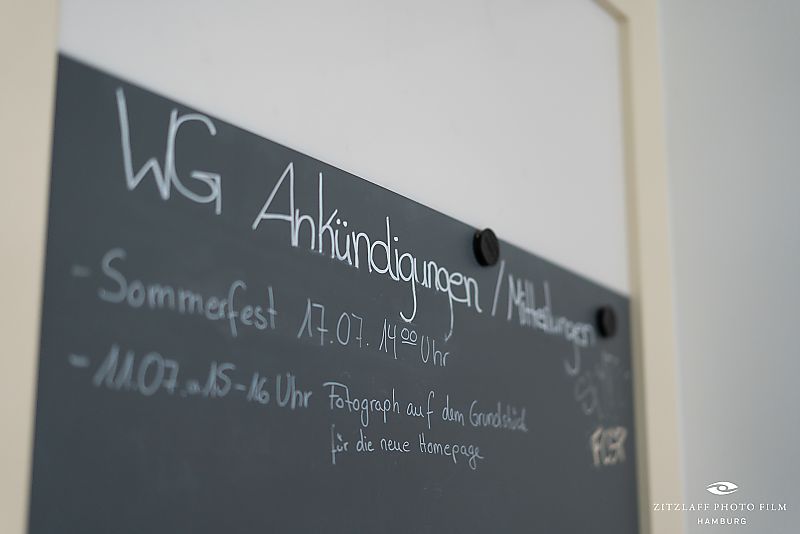 WG Ankündigungen / Mitteilungen
- Sommerfest 17.07. 14⁰⁰ Uhr
- 11.07. 15-16 Uhr Fotograph auf dem Grundstück
für die neue Homepage
ZITZLAFF PHOTO FILM
HAMBURG